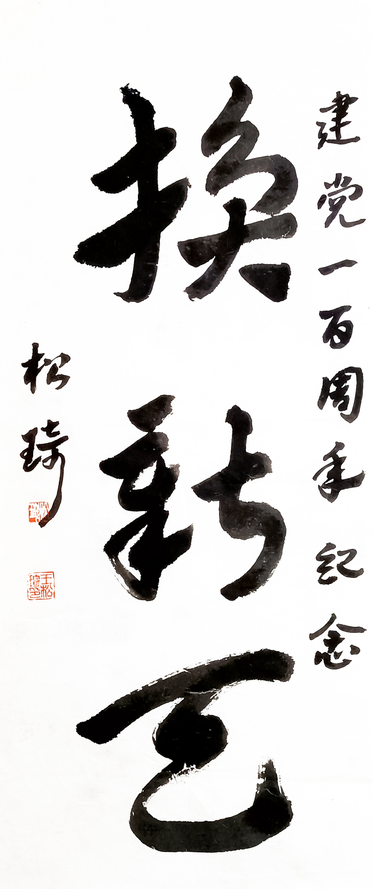 建党一百周年纪念
换新天
松琦